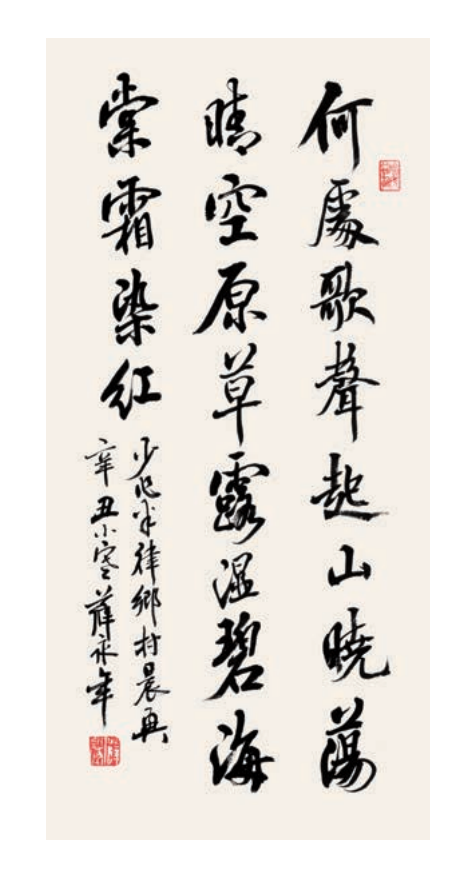 何處歌聲起山曉蕩
晴空原草露湿碧海
棠霜染红
少作半律鄉村晨興
辛丑小寒薛永年